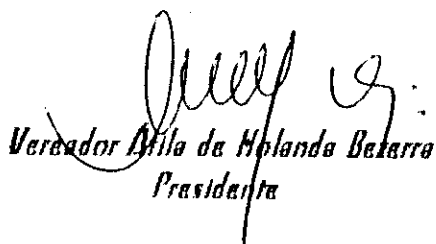 Vereador Átila de Holanda Bezerra
Presidente